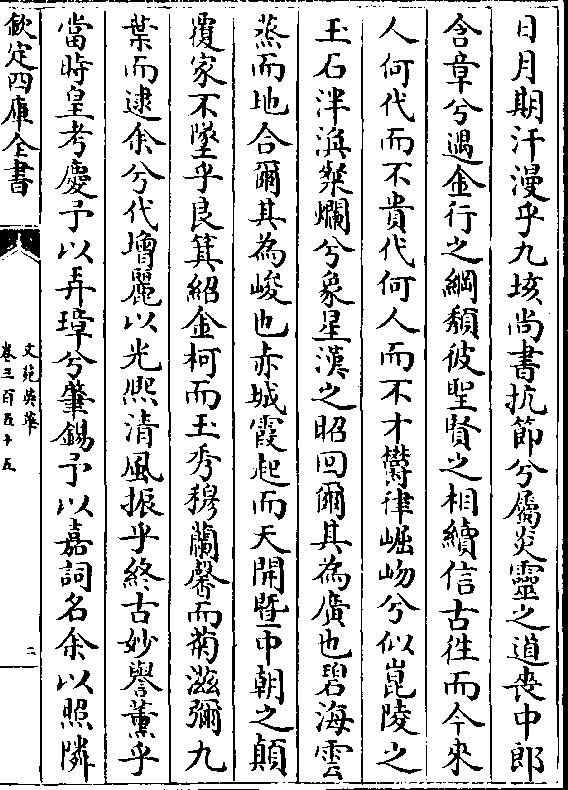 日月期汗漫乎九垓尚書抗節兮屬炎靈之道喪中郎
含章兮遇金行之綱頹彼聖賢之相續信古徃而今來
人何代而不貴代何人而不才欝律崛岉兮似崑陵之
玉石泮渙粲爛兮象星漢之昭回爾其為廣也碧海雲
蒸而地合爾其為峻也赤城霞起而天開曁中朝之顛
覆家不墜乎良箕紹金柯而玉秀穆蘭馨而菊滋彌九
葉而逮余兮代增麗以光熙清風振乎終古妙譽薰乎
當時皇考慶予以弄璋兮肇錫予以嘉詞名余以照隣
欽定四庫全書
文苑英華
卷三百五十五
二